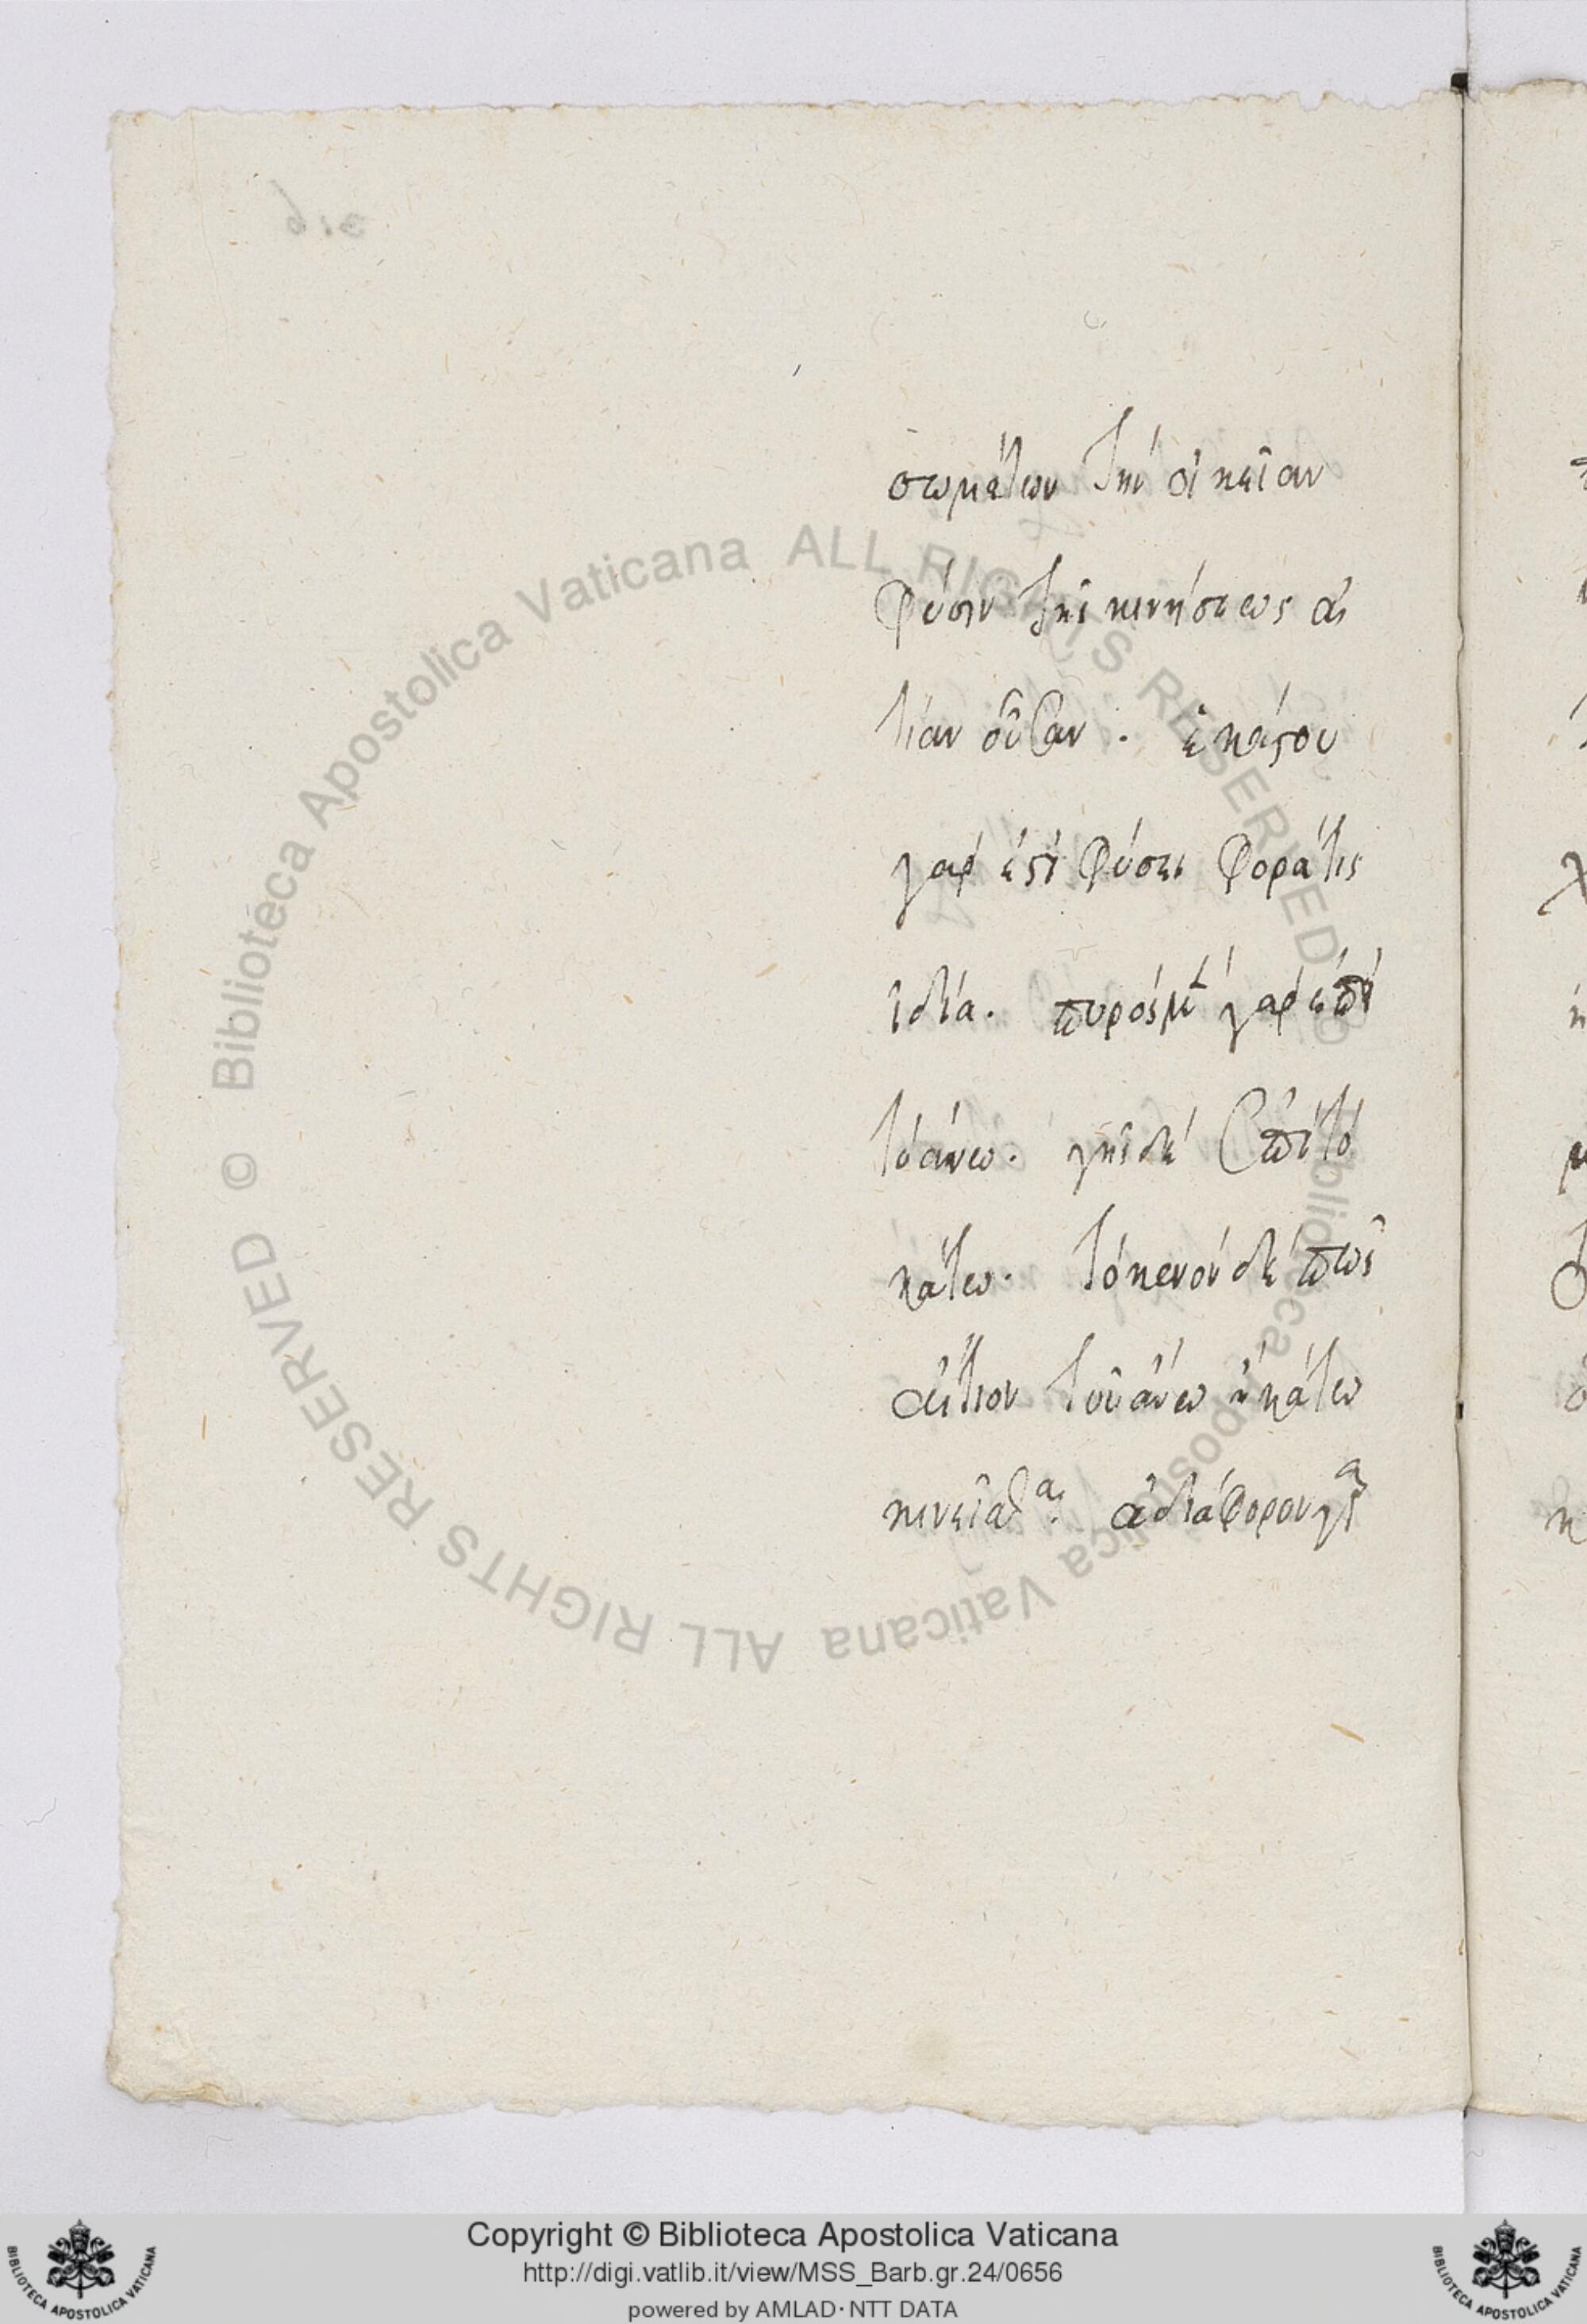 σωμάτων τὴν οἰκείαν
φύσιν τῆς κινήσεως αἰ
τίαν οὖσαν. ἑκάστου
γάρ ἐστι φύσει φορά τις
ἰδία. πυρὸς μὲν γὰρ ἐπὶ
τὸ ἄνω. γῆς δὲ ἐπὶ τὸ
κάτω. τὸ κενὸν δὲ πῶς
αἴτιον τοῦ ἄνω ἢ κάτω
κινεῖσθαι. ἀδιάφορον γὰρ
Biblioteca Apostolica Vaticana ALL RIGHTS RESERVED ©
Biblioteca Apostolica Vaticana ALL RIGHTS RESERVED ©
Copyright © Biblioteca Apostolica Vaticana
http://digi.vatlib.it/view/MSS_Barb.gr.24/0656
powered by AMLAD·NTT DATA
BIBLIOTECA APOSTOLICA VATICANA
BIBLIOTECA APOSTOLICA VATICANA